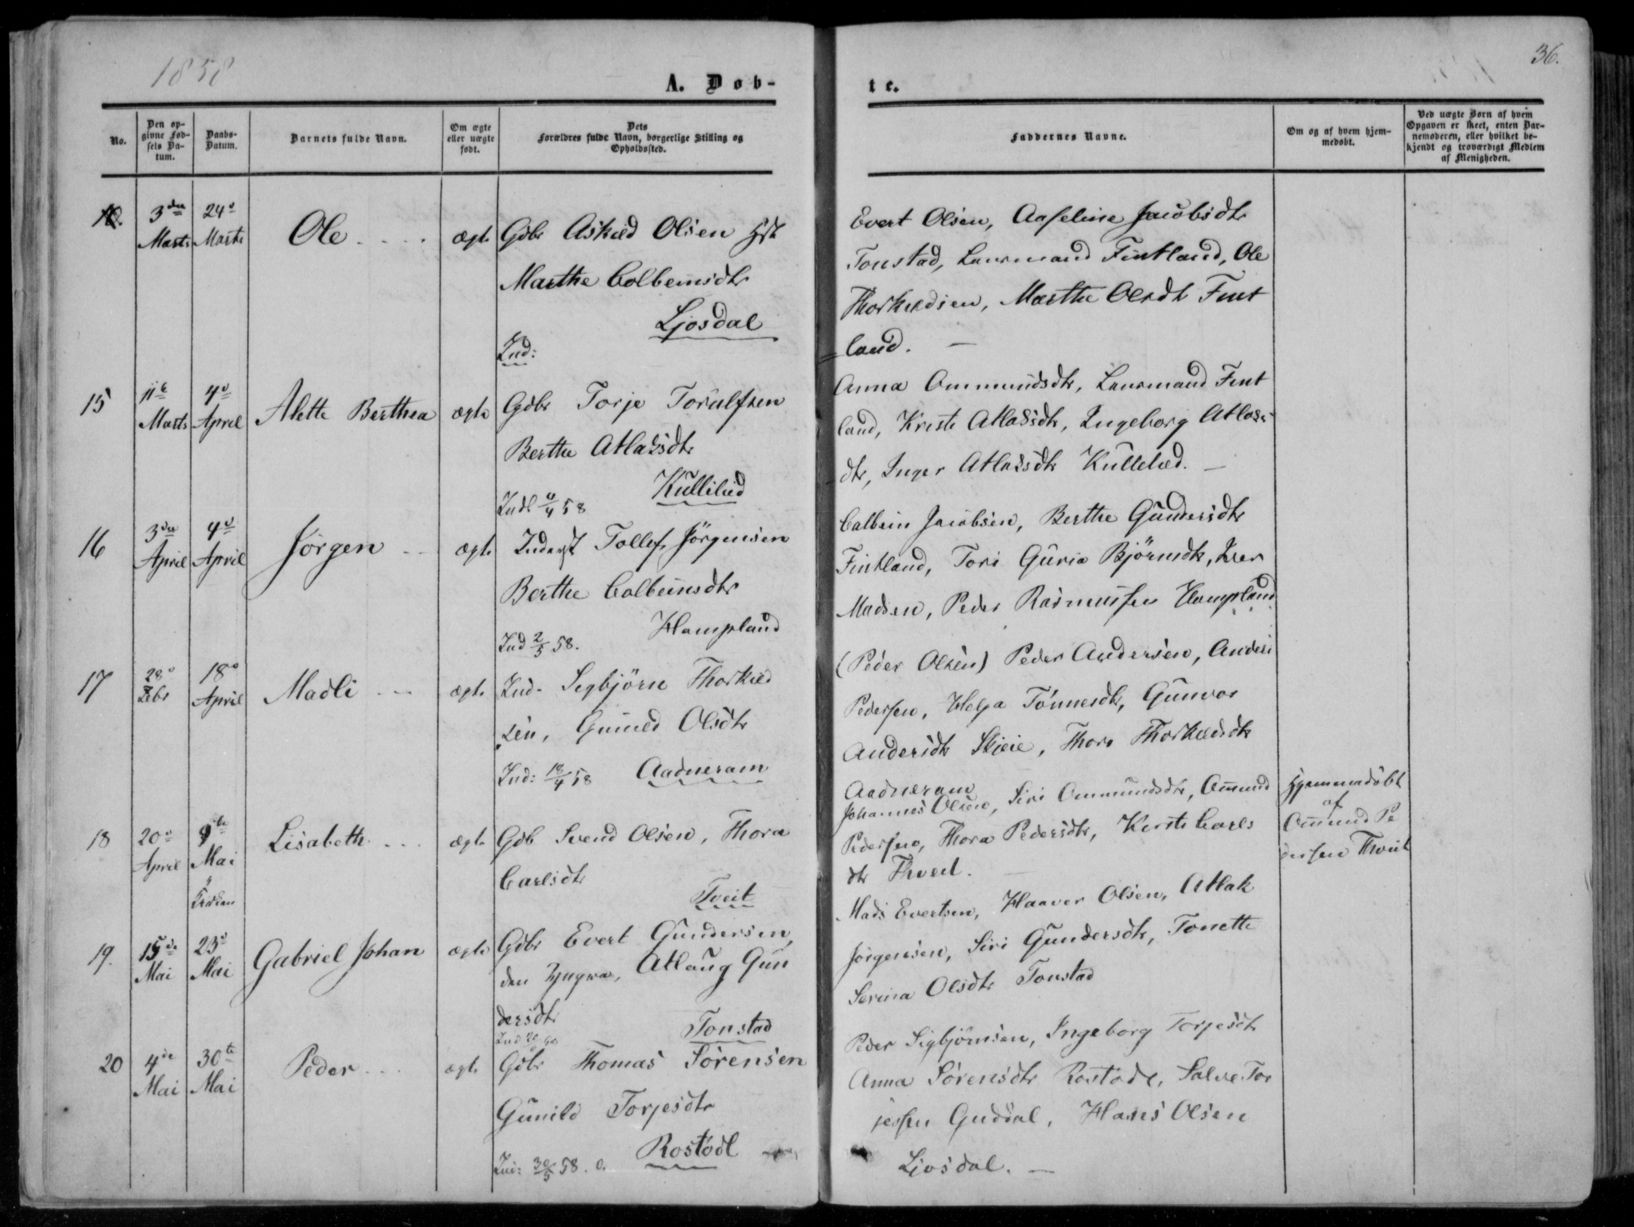 1858
36.
A. Døb-
te.
No.
Den op-
givne Fød-
sels Da-
tum.
Daabs-
Datum.
Barnets fulde Navn.
Om ægte
eller uægte
født.
Dets
Forældres fulde Navn, borgerlige Stilling og
Opholdssted.
Faddernes Navne.
Om og af hvem hjem-
medøbt.
Ved uægte Børn af hvem
Opgaven er skeet, enten Bar-
nemoderen, eller hvilket be-
kjendt og troværdigt Medlem
af Menigheden.
3die
Marts
24de
Marts
Ole
ægte
Gdbr Askild Olsen
Marthe Colbeinsdtr
Ljosdal
Ind:
Evert Olsen, Aaseline Jacobsdtr
Tonstad, Lensmand Fintland, Ole
Thorkildsen, Marthe Olsdtr Fint
land.
15
11te
Marts
4de
April
Alette Berthea
ægte
Gdbr Torje Torulfsen
Berthe Atlaksdtr
Kullilid
4 58
Anna Ommundsdtr, Lensmand Fint
land, Kristi Atlaksdtr, Ingeborg Atlaks-
dtr, Inger Atlaksdtr Kullelid.
16
3die
April
4de
April
Jørgen
ægte
Inderst Tollef Jørgensen
Berthe Colbeinsdtr
Hompland
Ind 2/5 58.
Colbein Jacobsen, Berthe Gundersdtr
Fintland, Tori Guria Bjørnsdtr, Iver
Madsen, Peder Rasmussen Hompland
17
28de
Febr
18de
April
Madli
ægte
Ind. Sigbjørn Thorkild
sen, Gunild Olsdtr
Ind: 18/4 58 Aadneram
(Peder Olsen) Peder Andersen, Anders
Pedersen, Helga Tønnesdtr, Gunvor
Andersdtr Skjeie, Thore Thorkildsdtr
Aadneram
18
20de
April
9de
Mai
Lisabeth
ægte
Gdb Svend Olsen, Thora
Carlsdtr
Tveit
Johannes Olsen, Siri Ommundsdtr, Omund
Pedersen, Thora Pedersdtr, Kirsti Carls
dtr Thveit.
Hjemmedøbt
af
Omund Pe
dersen Thveit
19.
15de
Mai
23de
Mai
Gabriel Johan
ægte
Gdbr Evert Gundersen
den yngre, Atlaug Gun
dersdtr
Tonstad
Mads Evertsen, Haaver Olsen, Atlak
Jørgensen, Siri Gundersdtr, Tonette
Serina Olsdtr Tonstad
20
4de
Mai
30te
Mai
Peder
ægte
Gdbr Thomas Sørensen
Gunild Torjesdtr
Rostøel
Ind: 30/5 58.
Peder Sigbjørnsen, Ingeborg Torjesdtr
Anna Sørensdtr Rostøel, Salve Tor
jessen Guddal, Hans Olsen
Ljosdal.